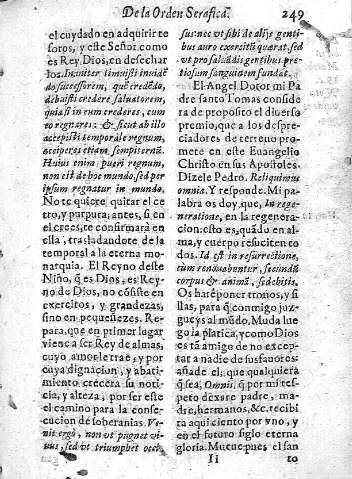 De la Orden Serafica. 249
el cuydado en adquirir te
soros, y este Señor como
es Rey, Dios, en desechar
los. Inuiter timuisti inuidē
do successorem, quē credēdo,
debuisti credere saluatorem,
quia si in eum crederes, cum
eo regnares: & sicut ab illo
accepisti temporale regnum,
acciperes etiam sempiternū.
Huius enim pueri regnum,
non est de hoc mundo, sed per
ipsum regnatur in mundo.
No te quiere quitar el ce
tro, y purpura; antes, si en
el crees, te confirmará en
ella, trasladandote de la
temporal a la eterna mo
narquia. El Reyno deste
Niño, q̃ es Dios, es Rey-
no de Dios, no cõsiste en
exercitos, y grandezas,
sino en pequeñezes. Re-
para, que en primer lugar
viene a ser Rey de almas,
cuyo amor le trae, y por
cuya dignacion, y abati-
miento crecerà su noti-
cia, y alteza, por ser este
el camino para la conse-
cucion de soberanias. Ve-
nit ergò, non vt pugnet vi-
uus, sed vt triumphet occi-
sus: nec vt sibi de alijs genti
bus auro exercitũ quærat, sed
vt pro saluãdis gentibus pre
tiosum sanguinem fundat.
El Angel Dotor mi Pa
dre santo Tomas conside
ra de proposito el diuerso
premio, que a los despre-
ciadores de terreno pro-
mete en este Euangelio
Christo en sus Apostoles.
Dizele Pedro. Reliquimus
omnia. Y responde. Mi pa
labra os doy, que, In rege-
neratione, en la regenera-
cion: esto es, quãdo en al-
ma, y cuerpo resuciten to
dos. Id est in resurrectione,
cum renouabuntur, secundũ
corpus & animã, sedebitis.
Os harè poner tronos, y si
llas, para q̃ conmigo juz-
gueys al mũdo. Muda lue
go la platica, y como Dios
es tã amigo de no excep-
tar a nadie de sus fauores
añade el; que qualquiera
q̃ sea, Omnis. q̃ por mi res-
peto dexare padre, ma-
dre, hermanos, &c. recibi
ra aqui ciento por vno, y
en el futuro siglo eterna
gloria. Mucue pues el san
Ii to